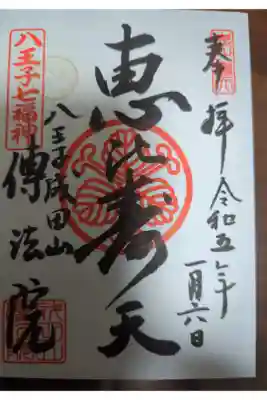 奉拝
令和五年
一月六日
恵比寿天
八王子七福神
八王子成田山
傳法院